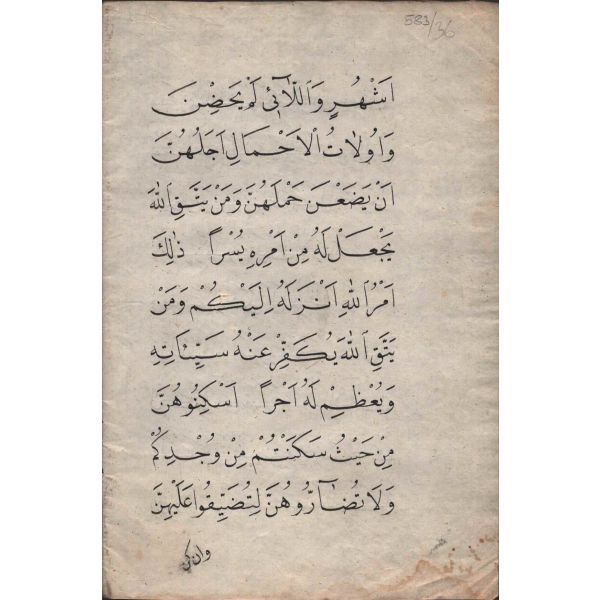 583/36
اَشْهُرٍ وَاللَّآئِي لَمْ يَحِضْنَ
وَاُولَاتُ الْاَحْمَالِ اَجَلُهُنَّ
اَنْ يَضَعْنَ حَمْلَهُنَّ وَمَنْ يَتَّقِ اللّٰهَ
يَجْعَلْ لَهُ مِنْ اَمْرِهِ يُسْراً ذٰلِكَ
اَمْرُ اللّٰهِ اَنْزَلَهُ اِلَيْكُمْ وَمَنْ
يَتَّقِ اللّٰهَ يُكَفِّرْ عَنْهُ سَيِّئَاتِهِ
وَيُعْظِمْ لَهُ اَجْراً اَسْكِنُوهُنَّ
مِنْ حَيْثُ سَكَنْتُمْ مِنْ وُجْدِكُمْ
وَلَا تُضَآرُّوهُنَّ لِتُضَيِّقُوا عَلَيْهِنَّ
وان كن